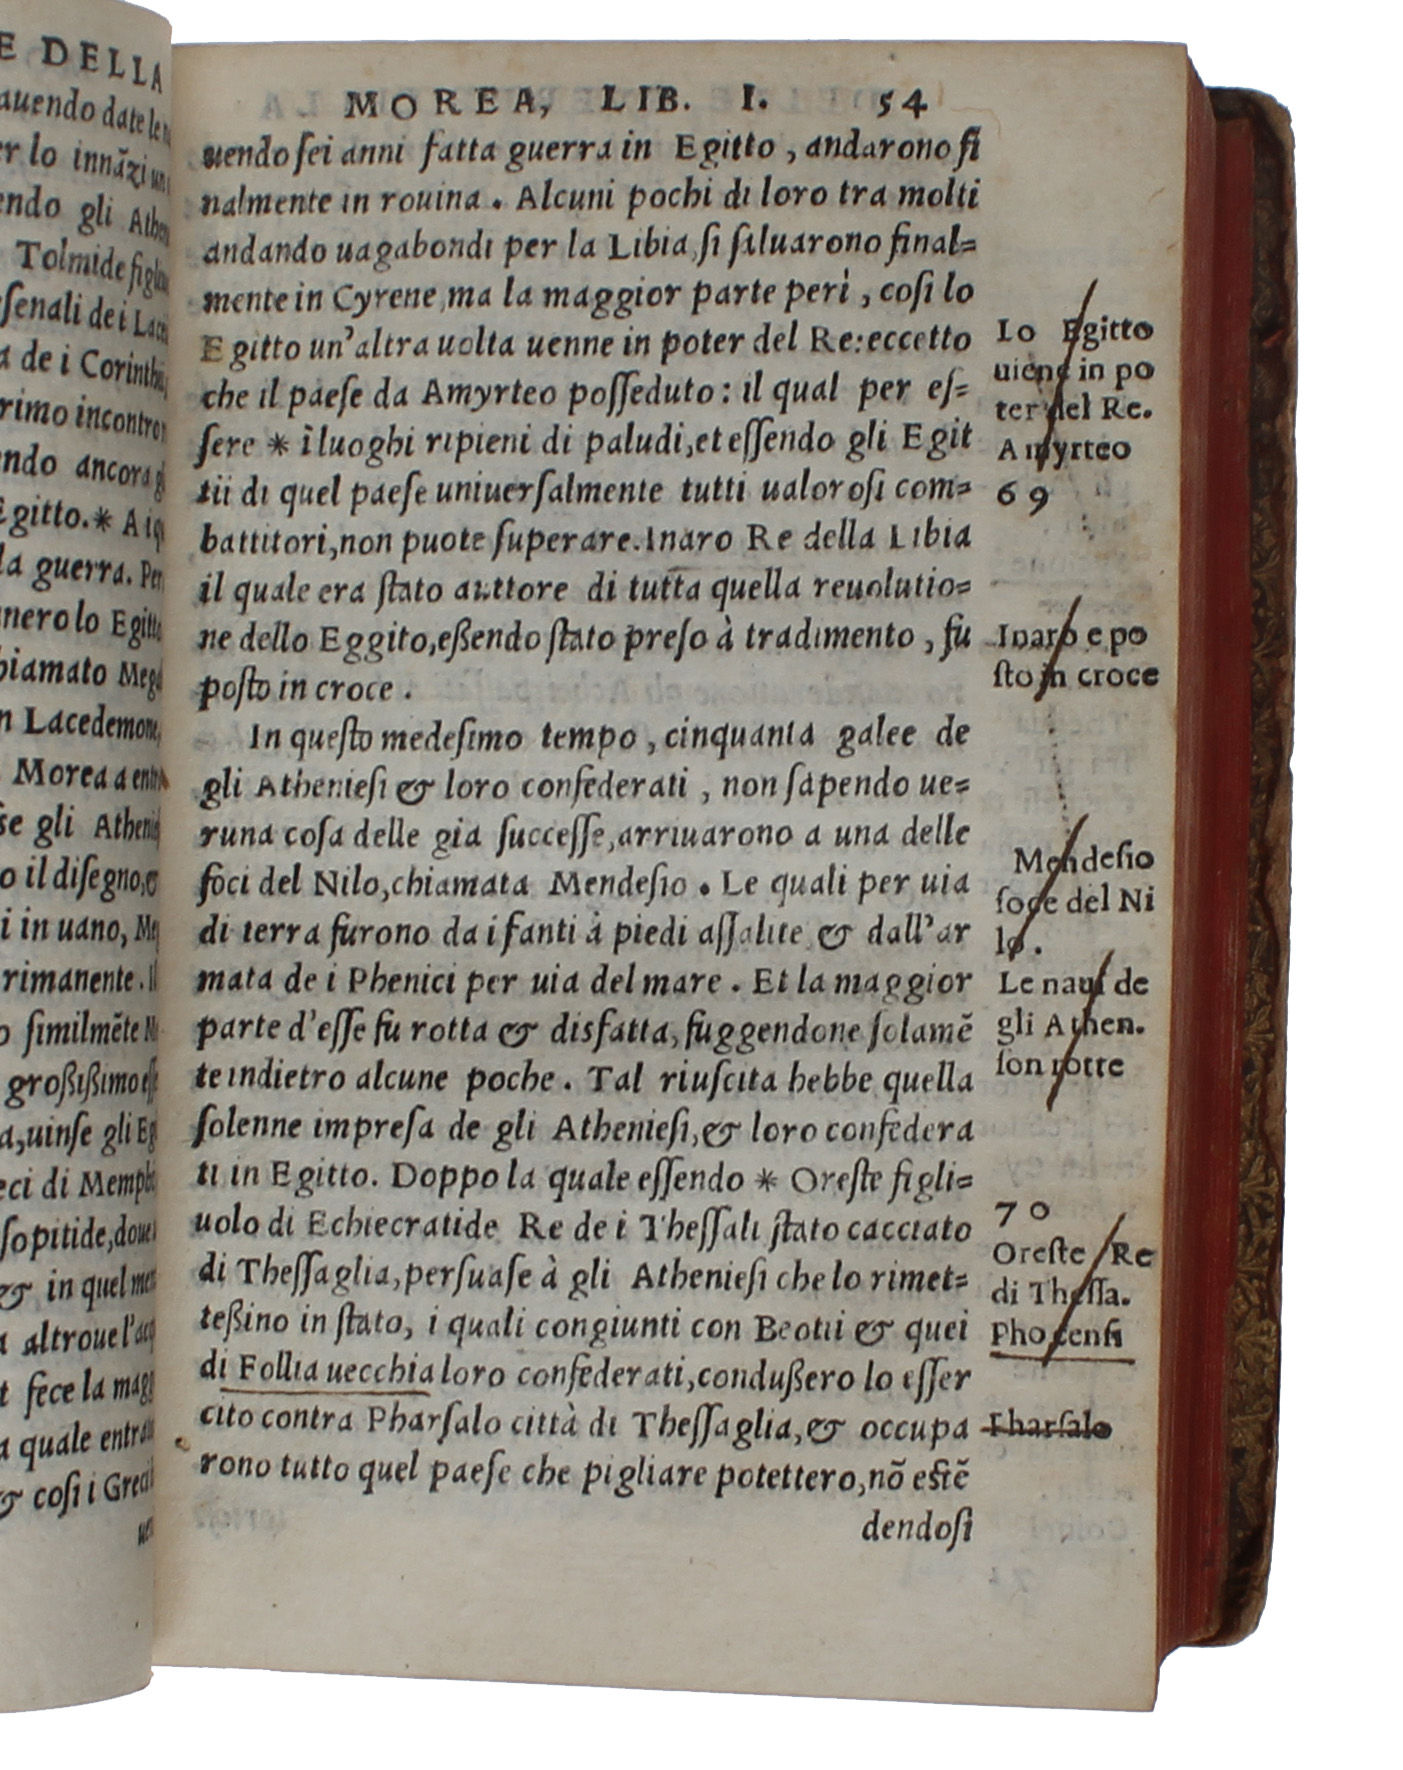 E DELLA
auendo date le
er lo innãzi
endo gli Athen
Tolmide figliu
ſenali de i Lace
a de i Corinthi
rimo incontro
ndo ancora g
Egitto.* A i
la guerra. Per
nero lo Egitto
biamato Mega
n Lacedemone,
Morea a entr
ſe gli Atheni
o il diſegno,&
i in uano, Me
rimanente. Il
o ſimilmẽte
großißimo eſſ
a,uinſe gli Eg
eci di Memph
ſopitide,doue
& in quel me
a altroue l'acq
t fece la magg
a quale entra
& coſi i Greci
uen
MOREA, LIB. I. 54
uendo ſei anni fatta guerra in Egitto, andarono fi
nalmente in rouina. Alcuni pochi di loro tra molti
andando uagabondi per la Libia, ſi ſaluarono final=
mente in Cyrene, ma la maggior parte perì, coſi lo
Egitto un'altra uolta uenne in poter del Re: eccetto
che il paeſe da Amyrteo poſſeduto: il qual per eſ=
ſere * ĩ luoghi ripieni di paludi, et eſſendo gli Egit
tii di quel paeſe uniuerſalmente tutti ualoroſi com=
battitori, non puote ſuperare. Inaro Re della Libia
il quale era ſtato auttore di tutta quella reuolutio=
ne dello Eggito, eßendo ſtato preſo à tradimento, fu
poſto in croce.
In queſto medeſimo tempo, cinquanta galee de
gli Athenieſi & loro confederati, non ſapendo ue=
runa coſa delle gia ſucceſſe, arriuarono a una delle
foci del Nilo, chiamata Mendeſio. Le quali per uia
di terra furono da i fanti à piedi aſſalite & dall'ar
mata de i Phenici per uia del mare. Et la maggior
parte d'eſſe fu rotta & disfatta, fuggendone ſolamẽ
te indietro alcune poche. Tal riuſcita hebbe quella
ſolenne impreſa de gli Athenieſi, & loro confedera
ti in Egitto. Doppo la quale eſſendo * Oreſte figli=
uolo di Echiecratide Re de i Theſſali ſtato cacciato
di Theſſaglia, perſuaſe à gli Athenieſi che lo rimet=
teßino in ſtato, i quali congiunti con Beotii & quei
di Follia uecchia loro confederati, condußero lo eſſer
cito contra Pharſalo città di Theſſaglia, & occupa
rono tutto quel paeſe che pigliare potettero, nõ eſtẽ
dendoſi
Lo Egitto
uiene in po
ter del Re.
Amyrteo
69
Inaro e po
ſto in croce
Mendeſio
foce del Ni
lo.
Le naui de
gli Athen.
ſon rotte
70
Oreſte Re
di Theſſa.
Phocenſi
Pharſalo